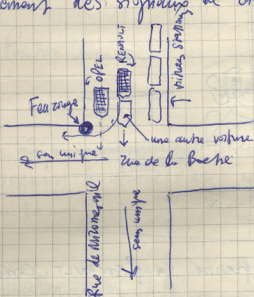 des signaux de
OPEL
RENAULT
voitures stationn
Feu rouge
une autre voiture
sens unique
rue de la Boetie
Rue de Miromesnil
sens unique